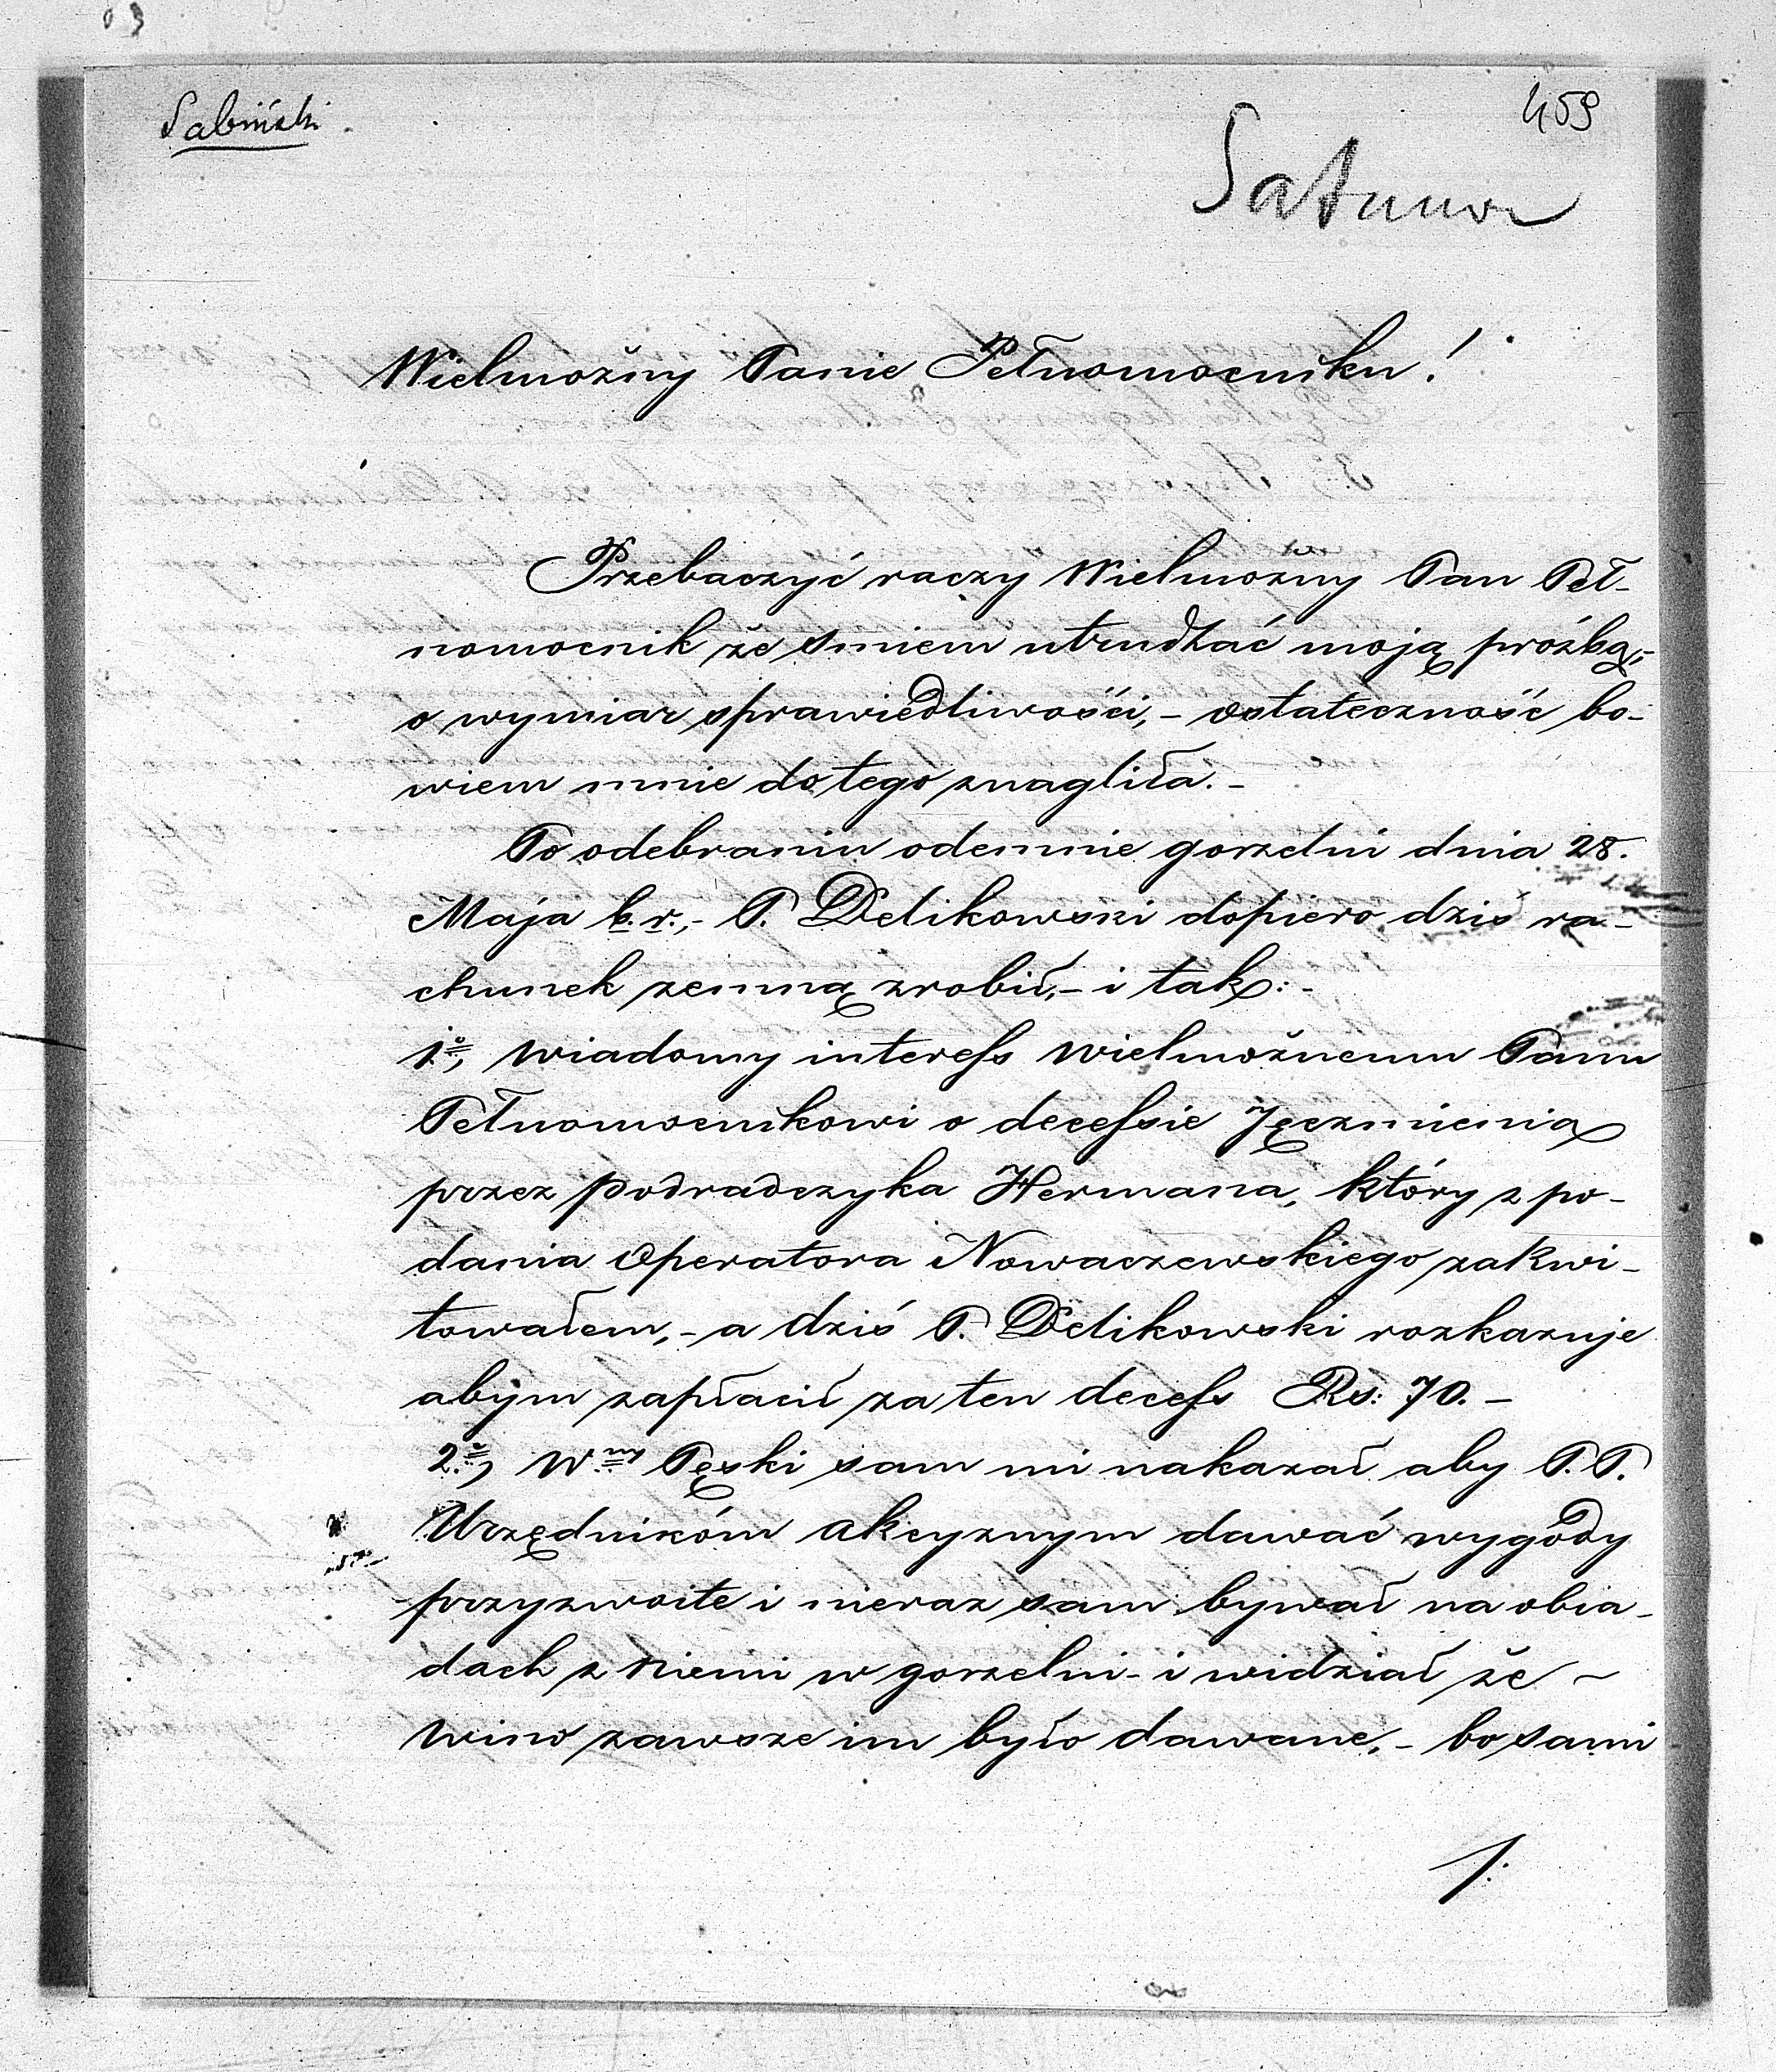 Sabiński
459
Satanow
Wielmożny Panie Pełnomocniku!
Przebaczyć raczy Wielmożny Pan Peł-
nomocnik że smiem utrudzać moją prośbą,-
o wymiar sprawiedliwości,- ostateczność bo-
wiem mnie do tego znagliła.-
Po odebraniu odemnie gorzelni dnia 28.
Maja b.r.,- P. Delikowski dopiero dziś ra-
chunek zemną zrobił,- i tak:-
1o, wiadomy interess Wielmożnemu Panu
Pełnomocnikowi o decessie Jęczmienia
przez podradczyka Hermana, który z po-
dania Operatora Nowaczewskiego zakwi-
towałem,- a dziś P. Delikowski rozkazuje
abym zapłacił za ten decess Rs: 70.-
2o, Wny Pęski sam mi nakazał aby P.P.
Urzędnikóm akcyznym dawać wygody
przyzwoite i nieraz sam bywał na obia-
dach z niemi w gorzelni- i widział że -
wino zawsze im było dawane,- bo sami
/.